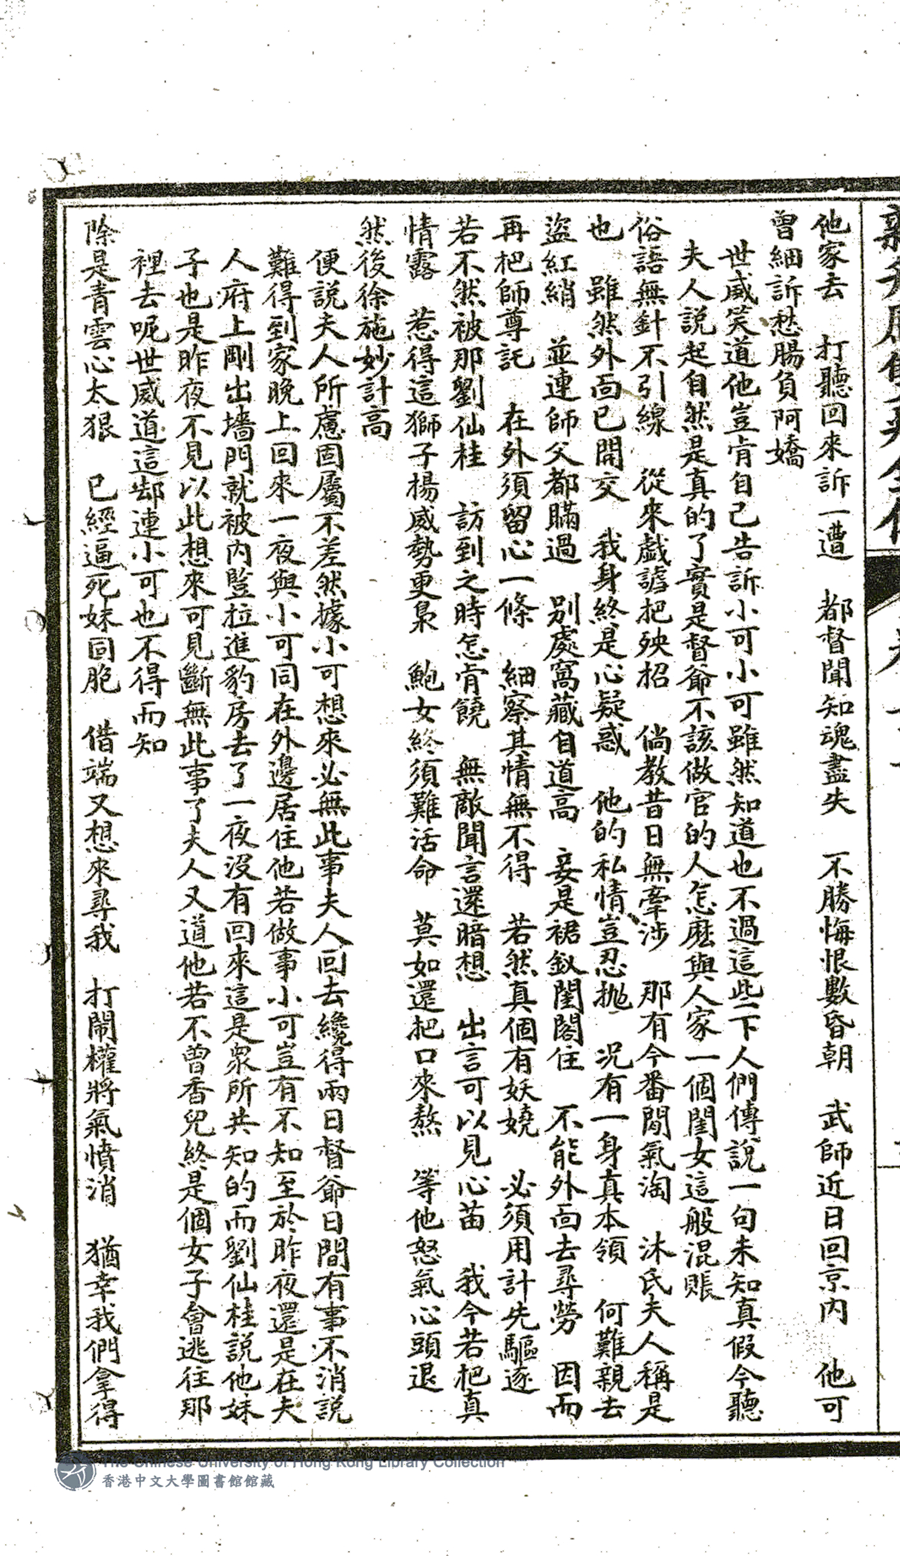 他家去　打聽回來訴一遭　都督聞知魂盡失　不勝悔恨數昏朝　武師近日回京內　他可
曾細訴愁腸負阿嬌
世威笑道他豈肯自己告訴小可小可雖然知道也不過這些下人們傳說一句未知真假今聽
夫人說起自然是真的了實是督爺不該做官的人怎麽與人家一個閨女這般混賬
俗語無針不引線　從來戲謔把殃招　倘教昔日無牽涉　那有今番閒氣淘　沐氏夫人稱是
也　雖然外面已開交　我身終是心疑惑　他的私情豈忍拋　况有一身真本領　何難親去
盜紅綃　並連師父都瞞過　別處窩藏自道高　妾是裙釵閨閣住　不能外面去尋勞　因而
再把師尊託　在外須留心一條　細察其情無不得　若然真個有妖嬈　必須用計先驅逐
若不然被那劉仙桂　訪到之時怎肯饒　無敵聞言還暗想　出言可以見心苗　我今若把真
情露　惹得這獅子揚威勢更梟　鮑女終須難活命　莫如還把口來熬　等他怒氣心頭退
然後徐施妙計高
便說夫人所慮固屬不差然據小可想來必無此事夫人回去纔得兩日督爺日間有事不消說
難得到家晚上回來一夜與小可同在外邊居住他若做事小可豈有不知至於昨夜還是在夫
人府上剛出墻門就被內監拉進豹房去了一夜沒有回來這是衆所共知的而劉仙桂說他妹
子也是昨夜不見以此想來可見斷無此事了夫人又道他若不曾香兒終是個女子會逃往那
裡去呢世威道這却連小可也不得而知
除是青雲心太狠　已經逼死妹同胞　借端又想來尋我　打鬧權將氣憤消　猶幸我們拿得
The Chinese University of Hong Kong Library Collection
香港中文大學圖書館館藏